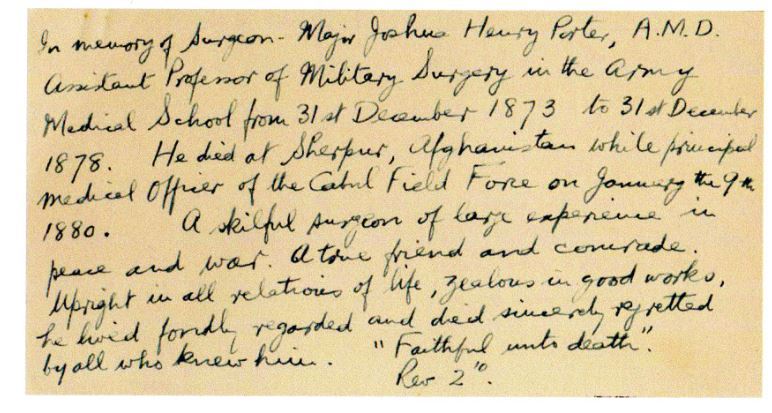 In memory of Surgeon-Major Joshua Henry Porter, A.M.D.
Assistant Professor of Military Surgery in the Army
Medical School from 31st December 1873 to 31st December
1878. He died at Sherpur, Afghanistan while principal
medical Officer of the Cabul Field Force on January the 9th
1880. A skilful surgeon of large experience in
peace and war. A true friend and comrade.
Upright in all relations of life, zealous in good works,
he lived fondly regarded and died sincerely regretted
by all who knew him. "Faithful unto death".
Rev 2"10.